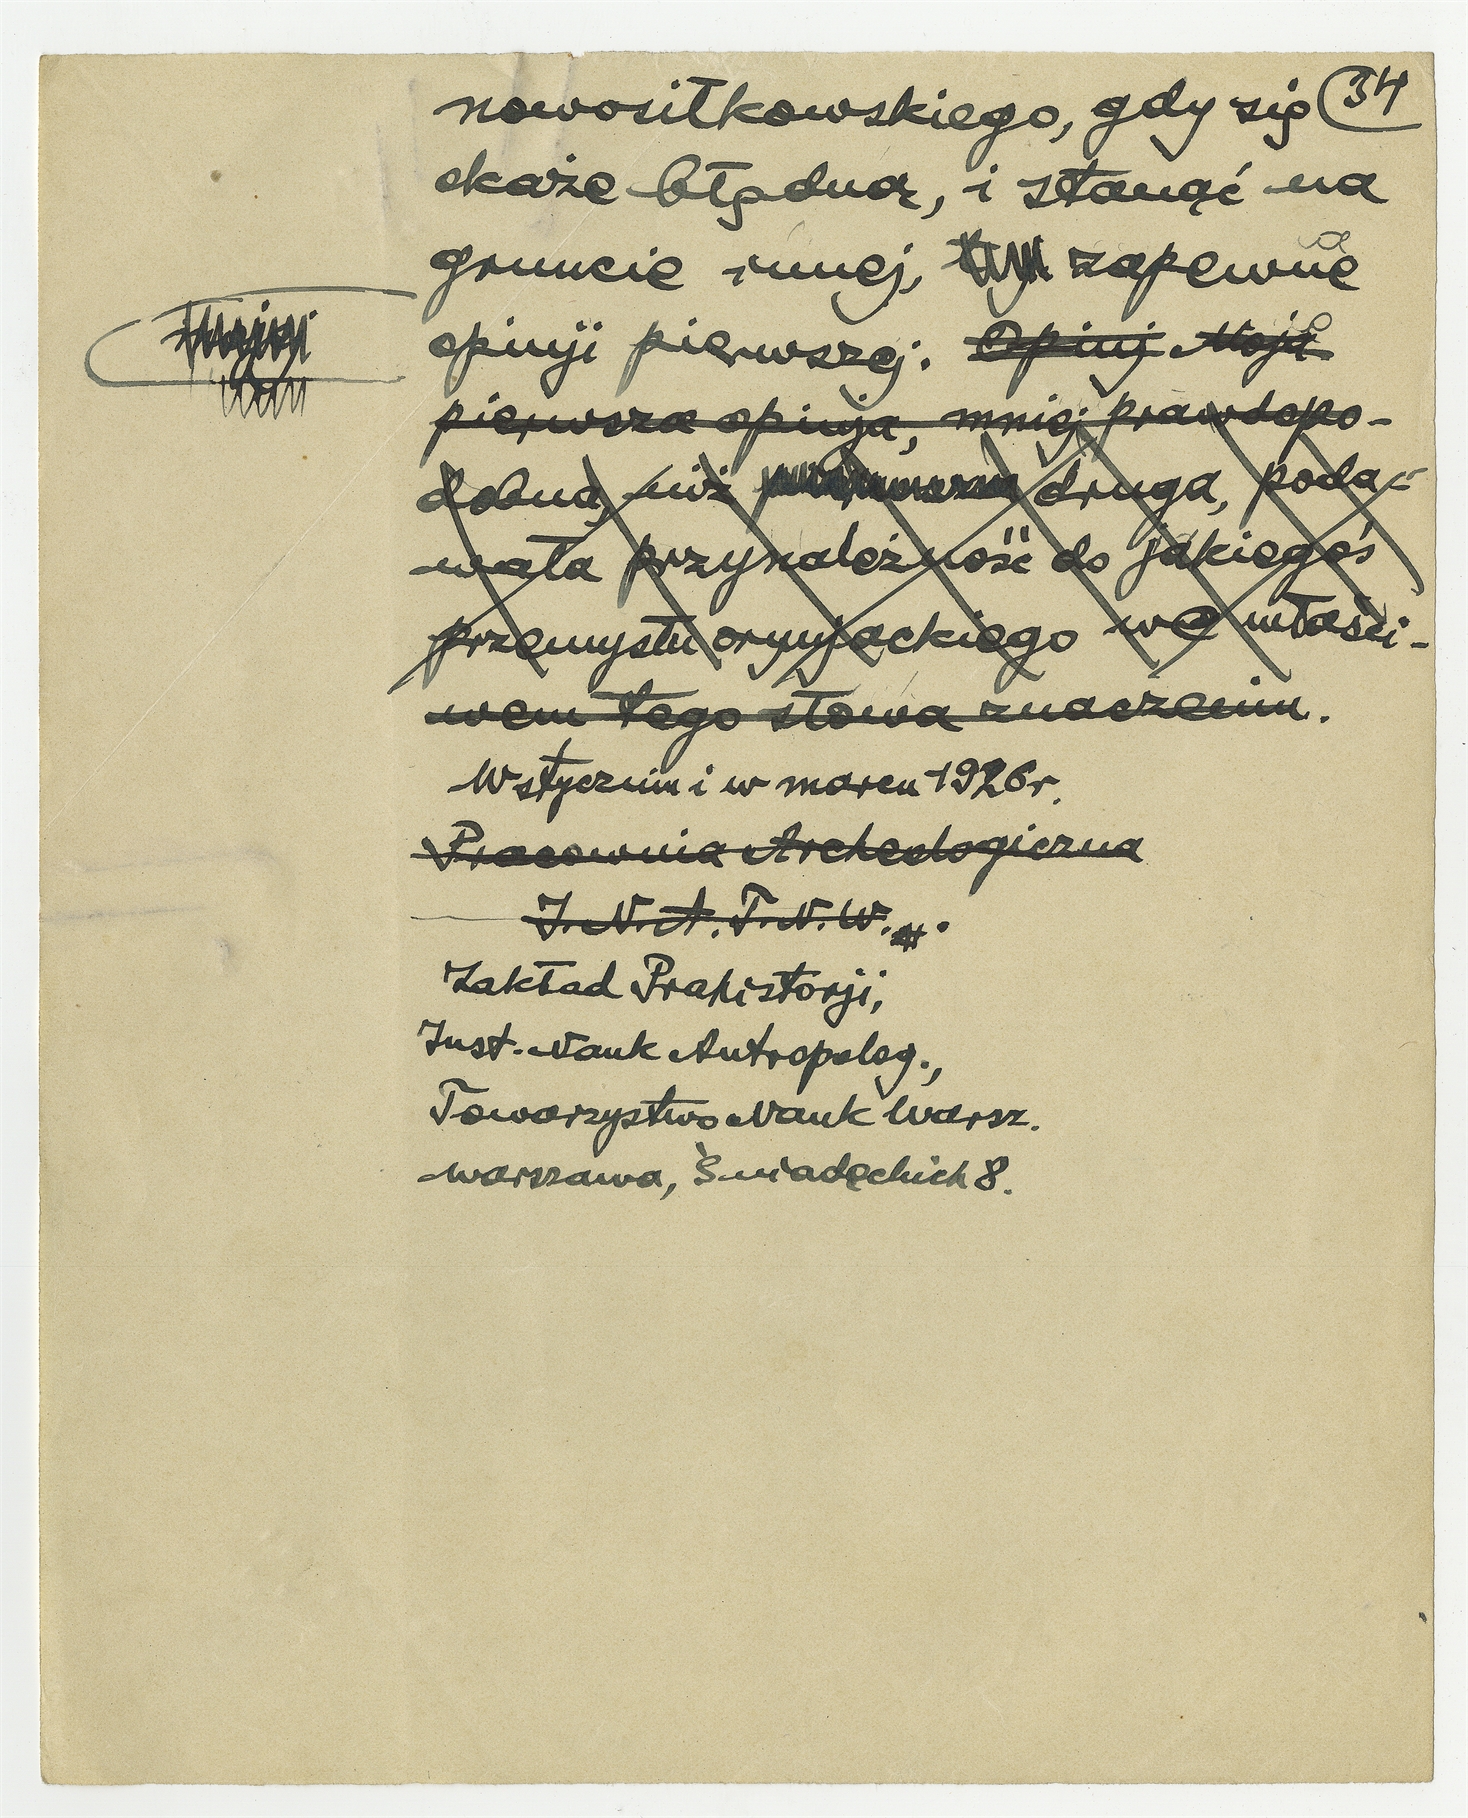 34
nowosiłkowskiego, gdy się
okaże błędną, i stanąć na
gruncie innej, zapewne
opinji pierwszej. Opinj Moja
pierwsza opinja, mniej prawdopo-
dobna, niż druga, poda-
wała przynależność do jakiegoś
przemysłu orynjackiego we właści-
wem tego słowa znaczeniu.
W styczniu i w marcu 1926 r.
Pracownia Archeologiczna
I.N.A.T.N.W.
Zakład Prahistorji,
Inst. Nauk Antropolog.,
Towarzystwo Nauk Warsz.
Warszawa, Śniadeckich 8.